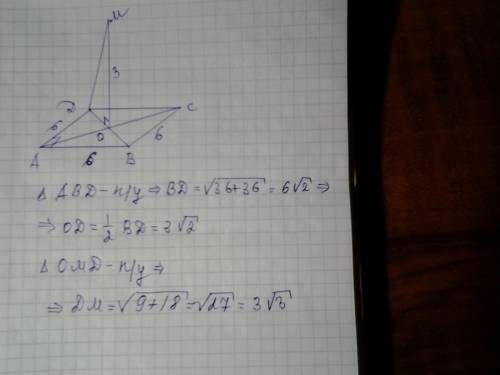 M
3
D
C
6
O
6
A
6
B
Δ ABD – п/у ⇒ BD = √36+36 = 6√2 ⇒
⇒ OD = 1/2 BD = 3√2
Δ OMD – п/у ⇒
⇒ DM = √9+18 = √27 = 3√3